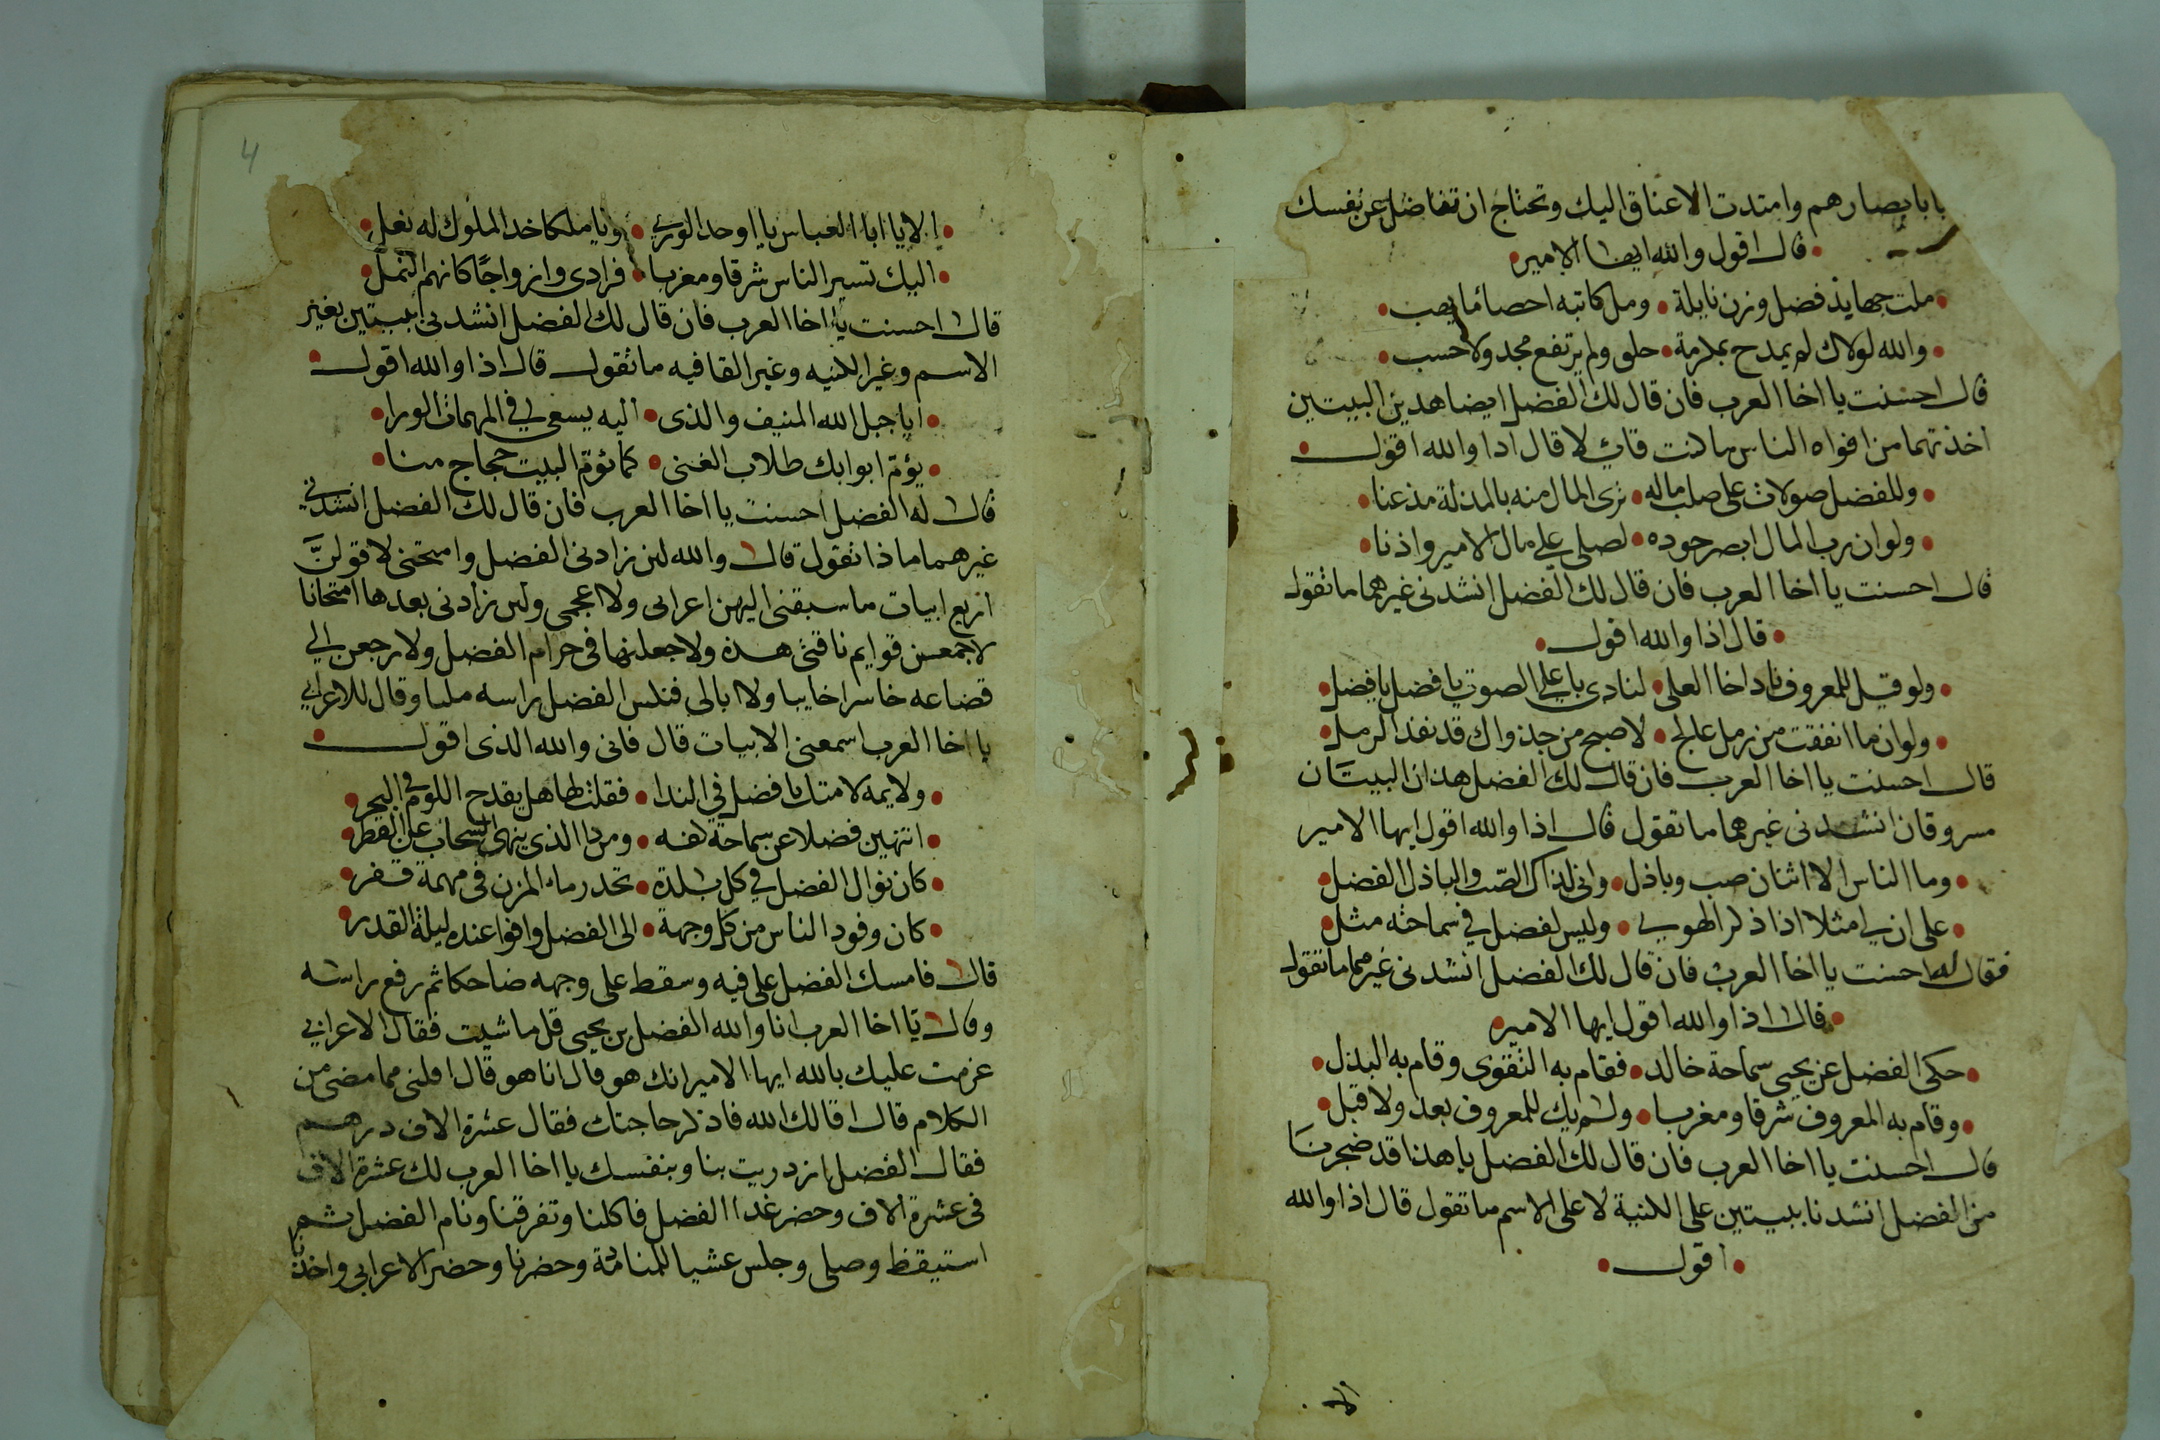 بابابصارهم وامتدت الاعناق اليك وتحتاج ان تفاضل عن نفسك
قال اقول والله ايها الامير
ملت جهابذ فضل وزن نايله ومل كاتبه احصا ما يهب
والله لولاك لم يمدح بمكرمة خلق ولم يرتفع مجد ولا حسب
قال احسنت يا اخا العرب فان قال لك الفضل ايضا هذين البيتين
اخذتهما من افواه الناس ما كنت قايل لا قال اذا والله اقول
وللفضل صولات على صلب ماله ترى المال منه بالمذلة مذعنا
ولو ان رب المال ابصر جوده لصلى على مال الامير واذنا
قال احسنت يا اخا العرب فان قال لك الفضل انشدنى غيرهما ما تقول
قال اذا والله اقول
ولو قيل للمعروف ناد اخا العلى لنادى باعلى الصوت يا فضل يا فضل
ولو ان ما انفقت من رمل عالج لاصبح من جدواك قد نفد الرمل
قال احسنت يا اخا العرب فان قال لك الفضل هذان البيتان
مسروقان انشدنى غيرهما ما تقول قال اذا والله اقول ايها الامير
وما الناس الا اثنان صب وباذل وانى لذاك الصب والباذل الفضل
على ان لي مثلا اذا ذكر الهوى وليس لفضل في سماحته مثل
فقال له احسنت يا اخا العرب فان قال لك الفضل انشدنى غيرهما ما تقول
قال اذا والله اقول ايها الامير
حكى الفضل عن يحيى سماحة خالد فقام به التقوى وقام به البذل
وقام به المعروف شرقا ومغربا ولم يك للمعروف بعد ولا قبل
قال احسنت يا اخا العرب فان قال لك الفضل يا هذا قد ضجرنا
من الفضل انشدنا بيتين على الكنية لا على الاسم ما تقول قال اذا والله
اقول
الا
4
الا يا ابا العباس يا اوحد الورى ويا ملكا خد الملوك له نعل
اليك تسير الناس شرقا ومغربا فرادى وازواجًا كانهم النمل
قال احسنت يا اخا العرب فان قال لك الفضل انشدنى بيتين بغير
الاسم وغير الكنيه وغير القافيه ما تقول قال اذا والله اقول
ايا جبل الله المنيف والذى اليه يسعى في المهمات الورا
يؤم ابوابك طلاب الغنى كما تؤم البيت حجاج منا
قال له الفضل احسنت يا اخا العرب فان قال لك الفضل انشدني
غيرهما ماذا تقول قال والله لئن زادنى الفضل وامتحنى لاقولنَّ
اربع ابيات ما سبقنى اليهن اعرابى ولا اعجمى ولئن زادنى بعدها امتحانا
لاجمعن قوايم ناقتى هذه ولاجعلنها فى حرام الفضل ولارجعن الي
قضاعه خاسرا خايبا ولا ابالى فنكس الفضل راسه مليا وقال للاعرابي
يا اخا العرب اسمعنى الابيات قال فانى والله الذى اقول
ولايمه لامتك يا فضل فى الندا فقلت لها هل يقدح اللوم فى البحر
اتنهين فضلا عن سماحة كفه ومن ذا الذى ينهى السحاب عن القطر
كان نوال الفضل في كل بلدة تحدر ماء المزن فى مهمة قفر
كان وفود الناس من كل وجهة الى الفضل وافوا عنده ليلة القدر
قال فامسك الفضل على فيه وسقط على وجهه ضاحكا ثم رفع راسه
وقال يا اخا العرب انا والله الفضل بن يحيى قل ما شيت فقال الاعرابي
عزمت عليك بالله ايها الامير انك هو قال انا هو قال اقلنى مما مضى من
الكلام قال اقالك الله فاذكر حاجتك فقال عشرة الاف درهم
فقال الفضل ازدريت بنا وبنفسك يا اخا العرب لك عشرة الاف
فى عشرة الاف وحضر غدا الفضل فاكلنا وتفرقنا ونام الفضل ثم
استيقظ وصلى وجلس عشيا للمنادمة وحضرنا وحضر الاعرابى واخذ